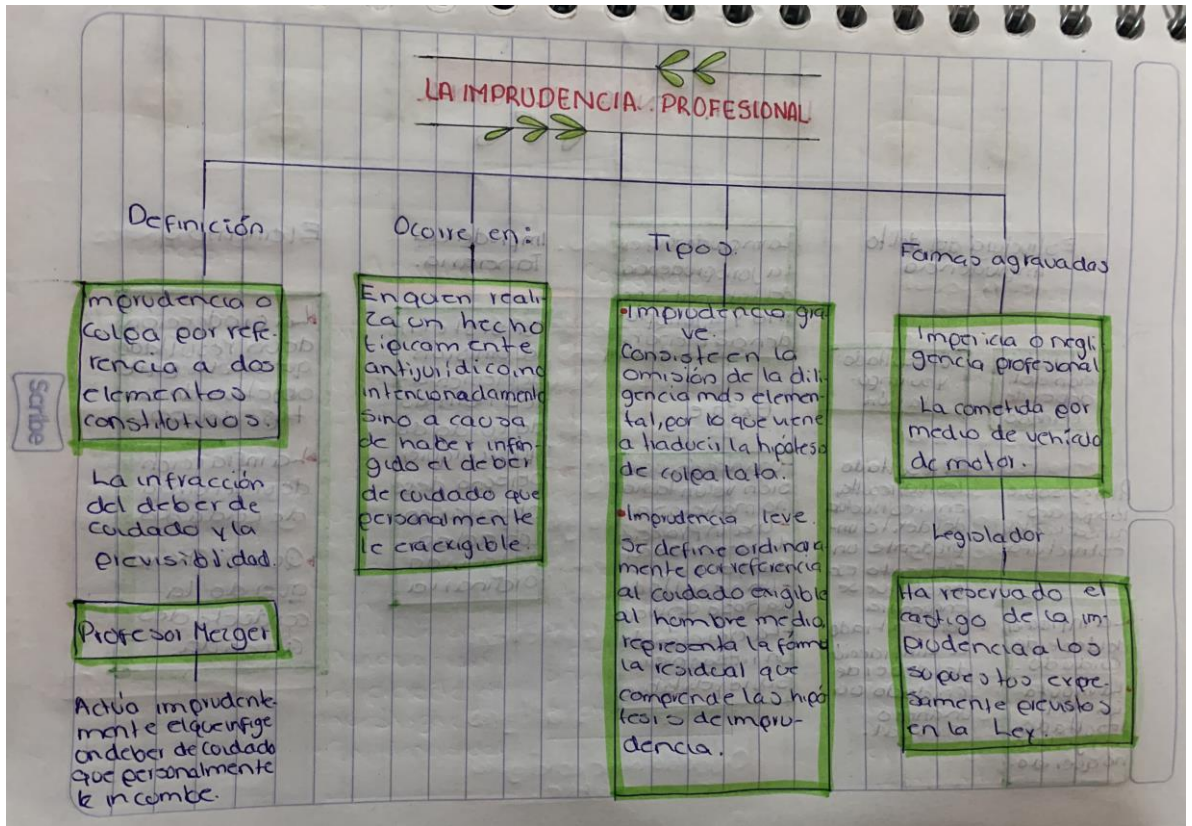 LA IMPRUDENCIA PROFESIONAL
Definición
Imprudencia o
culpa por refe-
rencia a dos
elementos
constitutivos.
La infracción
del deber de
cuidado y la
previsibilidad.
Profesor Mezger
Actúa imprudente-
mente el que infige
un deber de cuidado
que personalmente
le incombe.
Ocorre en:
En quien reali-
za un hecho
tipicamente
antijurídico, no
intencionadamente
sino a causa
de haber infrin-
gido el deber
de cuidado que
personalmente
le era exigible.
Tipos
•Imprudencia gra
ve.
Consiste en la
omisión de la dili
gencia más elemen
tal, por lo que viene
a traducir la hipótesis
de culpa lata.
•Imprudencia leve.
Se define ordinaria
mente por referencia
al cuidado exigible
al hombre media
representa la formu
la residual que
comprende las hipó
tesis de impru-
dencia.
Formas agravadas
Impericia o negli
gencia profesional
La cometida por
medio de vehículo
de motor.
Legislador
Ha reservado el
castigo de la im-
prudencia a los
supuestos expre-
samente previstos
en la Ley.
Scribe